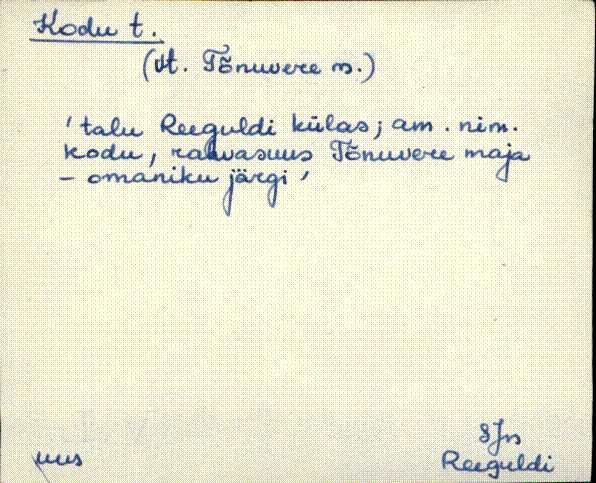 Kodu t.
(vt. Tõnuvere m.)
' talu Reeguldi külas; am. nim.
kodu, rahvasuus Tõnuvere maja
– omaniku järgi '
SJn
uus
Reeguldi